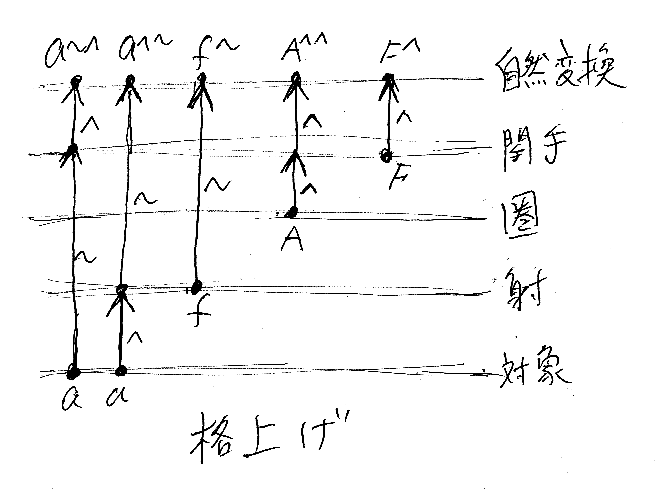 a~^ a^~ f~ A^^ F^ 自然変換
^ ^ ^
関手
~ ~ ^ F
圏
A
~
射
^ f
対象
a a
格上げ